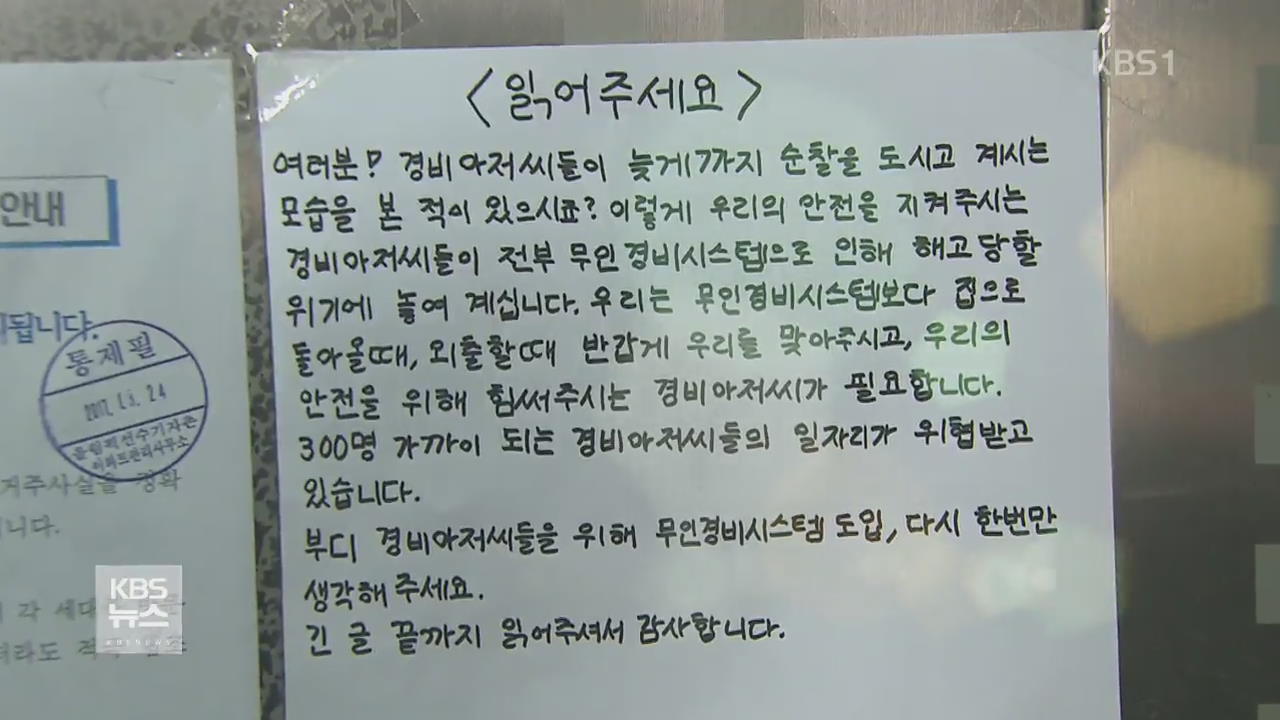 KBS1
<읽어주세요>
여러분? 경비아저씨들이 늦게까지 순찰을 도시고 계시는
모습을 본 적이 있으시죠? 이렇게 우리의 안전을 지켜주시는
경비아저씨들이 전부 무인경비시스템으로 인해 해고당할
위기에 놓여 계십니다. 우리는 무인경비시스템보다 집으로
돌아올때, 외출할때 반갑게 우리를 맞아주시고, 우리의
안전을 위해 힘써주시는 경비아저씨가 필요합니다.
300명 가까이 되는 경비아저씨들의 일자리가 위협받고
있습니다.
부디 경비아저씨들을 위해 무인경비시스템 도입, 다시 한번만
생각해 주세요.
긴 글 끝까지 읽어주셔서 감사합니다.
안내
됩니다.
통제필
2017. 24
올림픽선수기자촌
아파트관리사무소
거주사실을 정확
니다.
각 세대
라도
KBS
뉴스
KBS NEWS